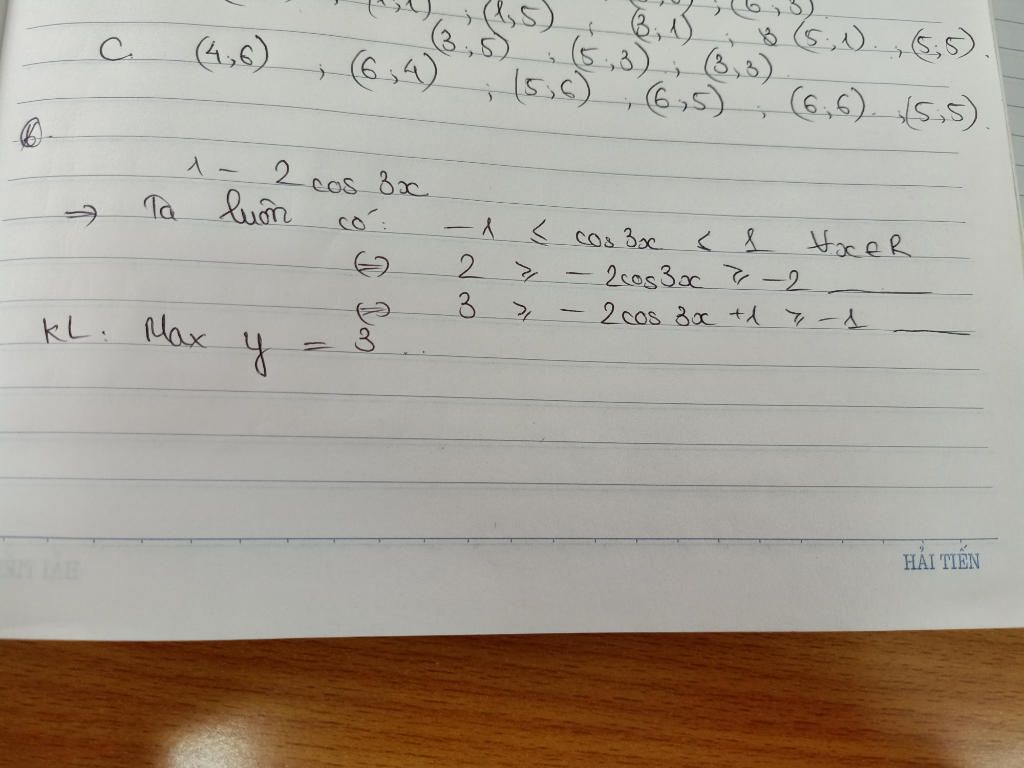 (1,1) ; (1,5) ; (3,1) ; (5,1) ; (5,5).
(3,5) ; (5,3) ; (3,3)
C. (4,6) ; (6,4) ; (5,6) ; (6,5) ; (6,6) ; (5,5).
6.
1 - 2 cos 3x
⇒ Ta luôn có: -1 ≤ cos3x < 1 ∀x∈R
⇔ 2 ≥ -2cos3x ≥ -2
⇔ 3 ≥ -2cos 3x +1 ≥ -1
KL: Max y = 3 ..
HẢI TIẾN